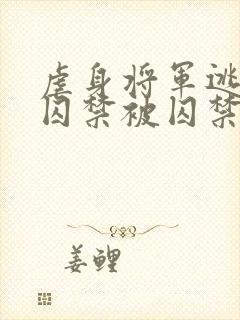 虐身将軍逃
囚禁被囚禁
姜鲤